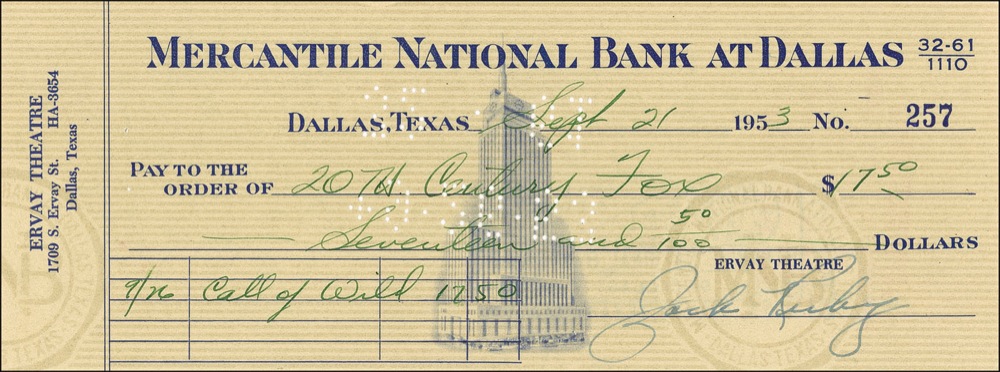 MERCANTILE NATIONAL BANK AT DALLAS 32-61/1110
ERVAY THEATRE
1709 S. Ervay St. HA-3654
Dallas, Texas
DALLAS, TEXAS Sept 21 1953 No. 257
PAY TO THE ORDER OF 20TH Century Fox $17 50
Seventeen and 50/100 DOLLARS
ERVAY THEATRE
9/26 Call of Wild 17 50
Jack Ruby